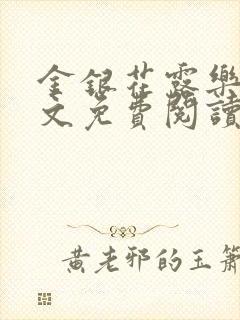 金銀花露樂
文免費閱讀
黃老邪的玉簫